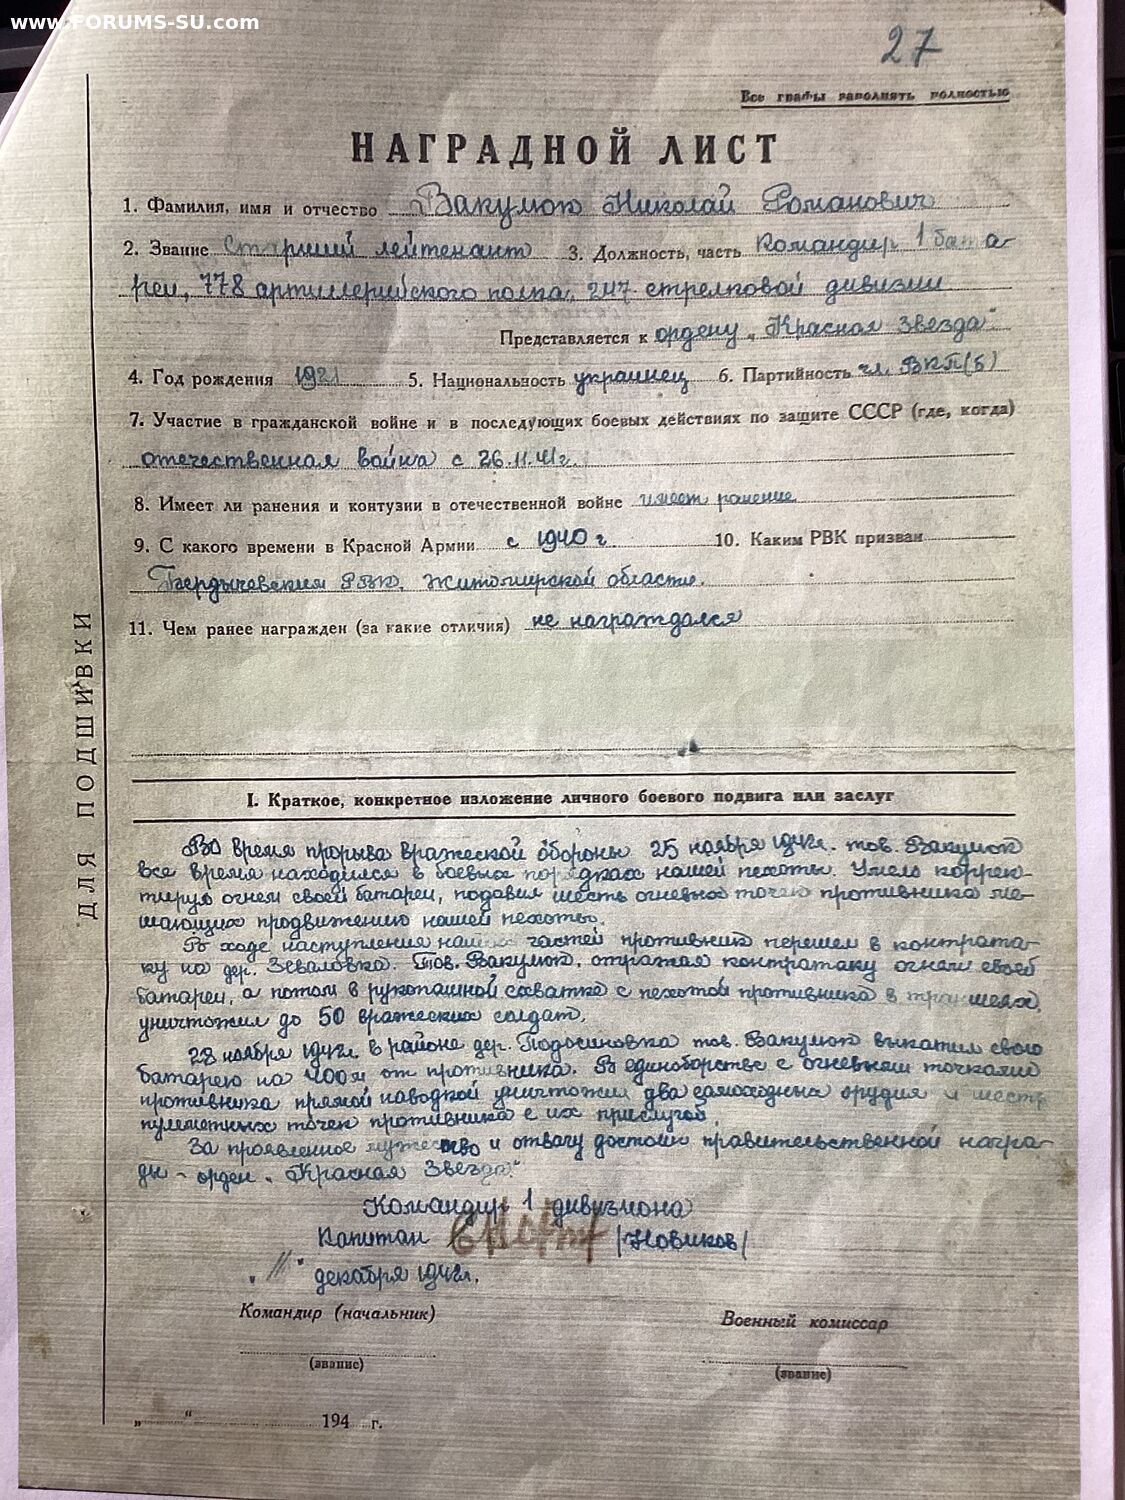 www.FORUMS-SU.com
27
Все графы заполнять полностью
НАГРАДНОЙ ЛИСТ
1. Фамилия, имя и отчество Вакумюк Николай Романович
2. Звание Старший лейтенант 3. Должность, часть Командир 1 бата-
реи, 778 артиллерийского полка, 247 стрелковой дивизии
Представляется к ордену „Красная Звезда"
4. Год рождения 1921 5. Национальность украинец 6. Партийность чл. ВКП(б)
7. Участие в гражданской войне и в последующих боевых действиях по защите СССР (где, когда)
отечественная война с 26.11.41г.
8. Имеет ли ранения и контузии в отечественной войне имеет ранение
9. С какого времени в Красной Армии с 1940 г. 10. Каким РВК призван
Бердычевским РВК, Житомирской области.
11. Чем ранее награжден (за какие отличия) не награждался
ДЛЯ ПОДШИВКИ
I. Краткое, конкретное изложение личного боевого подвига или заслуг
Во время прорыва вражеской обороны 25 ноября 1942г. тов. Вакумюк
все время находился в боевых порядках нашей пехоты. Умело коррек-
тируя огнем своей батареи, подавил шесть огневых точек противника ме-
шающих продвижению нашей пехоты.
В ходе наступления наших частей противник перешел в контрата-
ку на дер. Зеваловка. Тов. Вакумюк, отражая контратаку огнем своей
батареи, а потом в рукопашной схватке с пехотой противника в траншеях,
уничтожил до 50 вражеских солдат.
28 ноября 1942г. в районе дер. Подосиновка тов. Вакумюк выкатил свою
батарею на 400м от противника. В единоборстве с огневыми точками
противника прямой наводкой уничтожил два самоходных орудия и шесть
пулеметных точек противника с их прислугой.
За проявленное мужество и отвагу достоин правительственной награ-
ды - орден „Красная Звезда"
Командир 1 дивизиона
Капитан /Новиков/
„ " декабря 1942г.
Командир (начальник) Военный комиссар
(звание) (звание)
„ " 194 г.